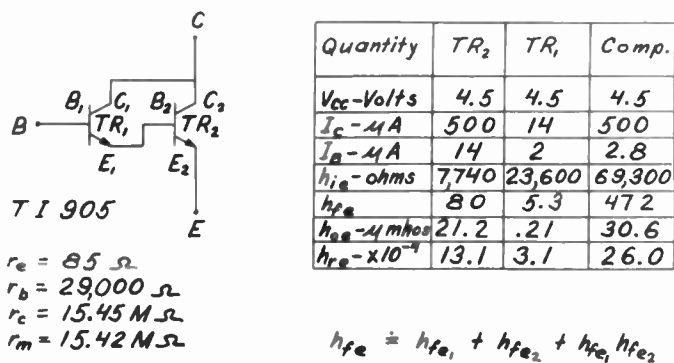 C
B₁ C₁ B₂ C₂
B TR₁ TR₂
E₁ E₂
TI 905
E
rₑ = 85 Ω
r_b = 29,000 Ω
r_c = 15.45 M Ω
r_m = 15.42 M Ω
Quantity TR₂ TR₁ Comp.
V_cc-Volts 4.5 4.5 4.5
I_c-μA 500 14 500
I_B-μA 14 2 2.8
h_ie-ohms 7,740 23,600 69,300
h_fe 80 5.3 472
h_oe-μmhos 21.2 .21 30.6
h_re-x10⁻⁴ 13.1 3.1 26.0
h_fe ≐ h_fe₁ + h_fe₂ + h_fe₁ h_fe₂